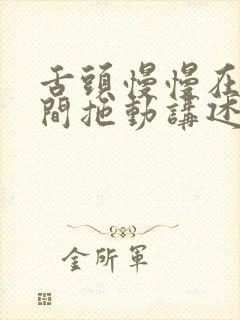 舌頭慢慢在
間拖動講述
金所軍